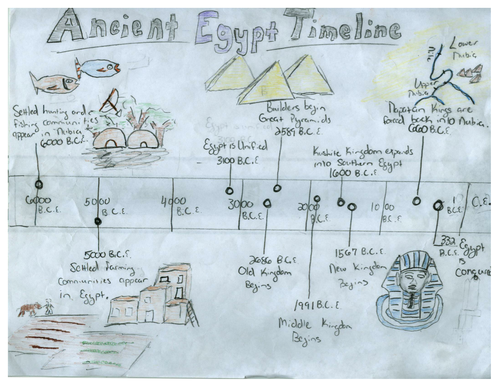 Ancient Egypt Timeline
Lower
Nubia
Upper
Nubia
Settled hunting and
fishing communities
appear in Nubia
6000 B.C.E
Builders begin
Great Pyramids
2589 B.C.E
Kings are
forced back into Nubia.
Egypt is Unified
3100 B.C.E
Kushite Kingdom expands
into Southern Egypt
1600 B.C.E
6000
B.C.E
5000
B.C.E
4000
B.C.E
3000
B.C.E
2000
B.C.E
1000
B.C.E
1
B.C.E
C.E.
5000 B.C.E.
Settled farming
communities appear
in Egypt.
2686 B.C.E
Old Kingdom
Begins
1991 B.C.E
Middle Kingdom
Begins
1567 B.C.E
New Kingdom
Begins
332 Egypt
B.C.E is